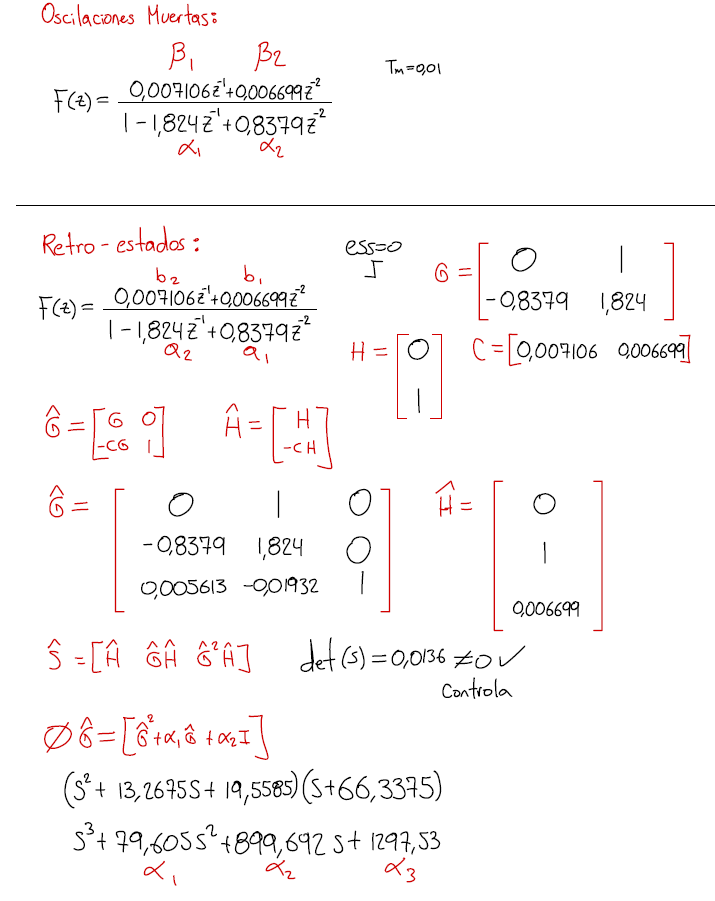 Oscilaciones Muertas:
β₁ β₂
F(z) = (0,007106z⁻¹+0,006699z⁻²) / (1-1,824z⁻¹+0,8379z⁻²)
Tm=0,01
α₁ α₂
Retro-estados:
b₂ b₁
F(z) = (0,007106z⁻¹+0,006699z⁻²) / (1-1,824z⁻¹+0,8379z⁻²)
a₂ a₁
ess=0
G = [0 1
-0,8379 1,824]
H = [0
1]
C = [0,007106 0,006699]
Ĝ = [G 0
-CG 1]
Ĥ = [H
-CH]
Ĝ = [0 1 0
-0,8379 1,824 0
0,005613 -0,01932 1]
Ĥ = [0
1
0,006699]
Ŝ = [Ĥ ĜĤ Ĝ²Ĥ]
det(s) = 0,0136 ≠ 0 ✓
Controla
∅Ĝ = [Ĝ²+α₁Ĝ+α₂I]
(s²+ 13,2675s+ 19,5585)(s+66,3375)
s³+ 79,605s²+899,692 s+ 1297,53
α₁ α₂ α₃